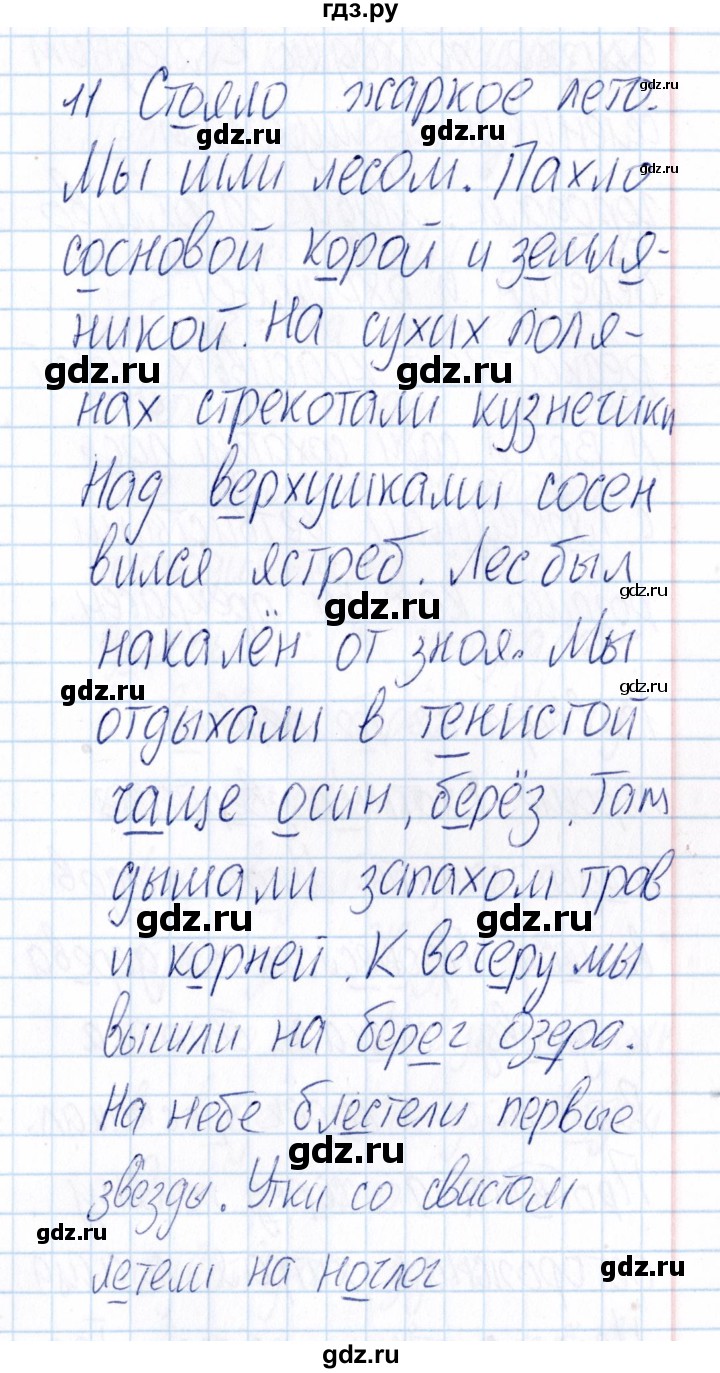 гдз.ру
11 Стояло жаркое лето.
gdz.ru
gdz.ru
gdz.ru
Мы шли лесом. Пахло
gdz.ru
сосновой корой и земля-
никой. На сухих поля-
gdz.ru
gdz.ru
нах стрекотали кузнечики
Над верхушками сосен
вился ястреб. Лес был
gdz.ru
gdz.ru
накалён от зноя. Мы
gdz.ru
gdz.ru
отдыхали в тенистой
чаще осин, берёз. Там
дышали запахом трав
gdz.ru
gdz.ru
и корней. К вечеру мы
вышли на берег озера.
На небе блестели первые
gdz.ru
звезды. Утки со свистом
gdz.ru
летели на ночлег
gdz.ru
gdz.ru